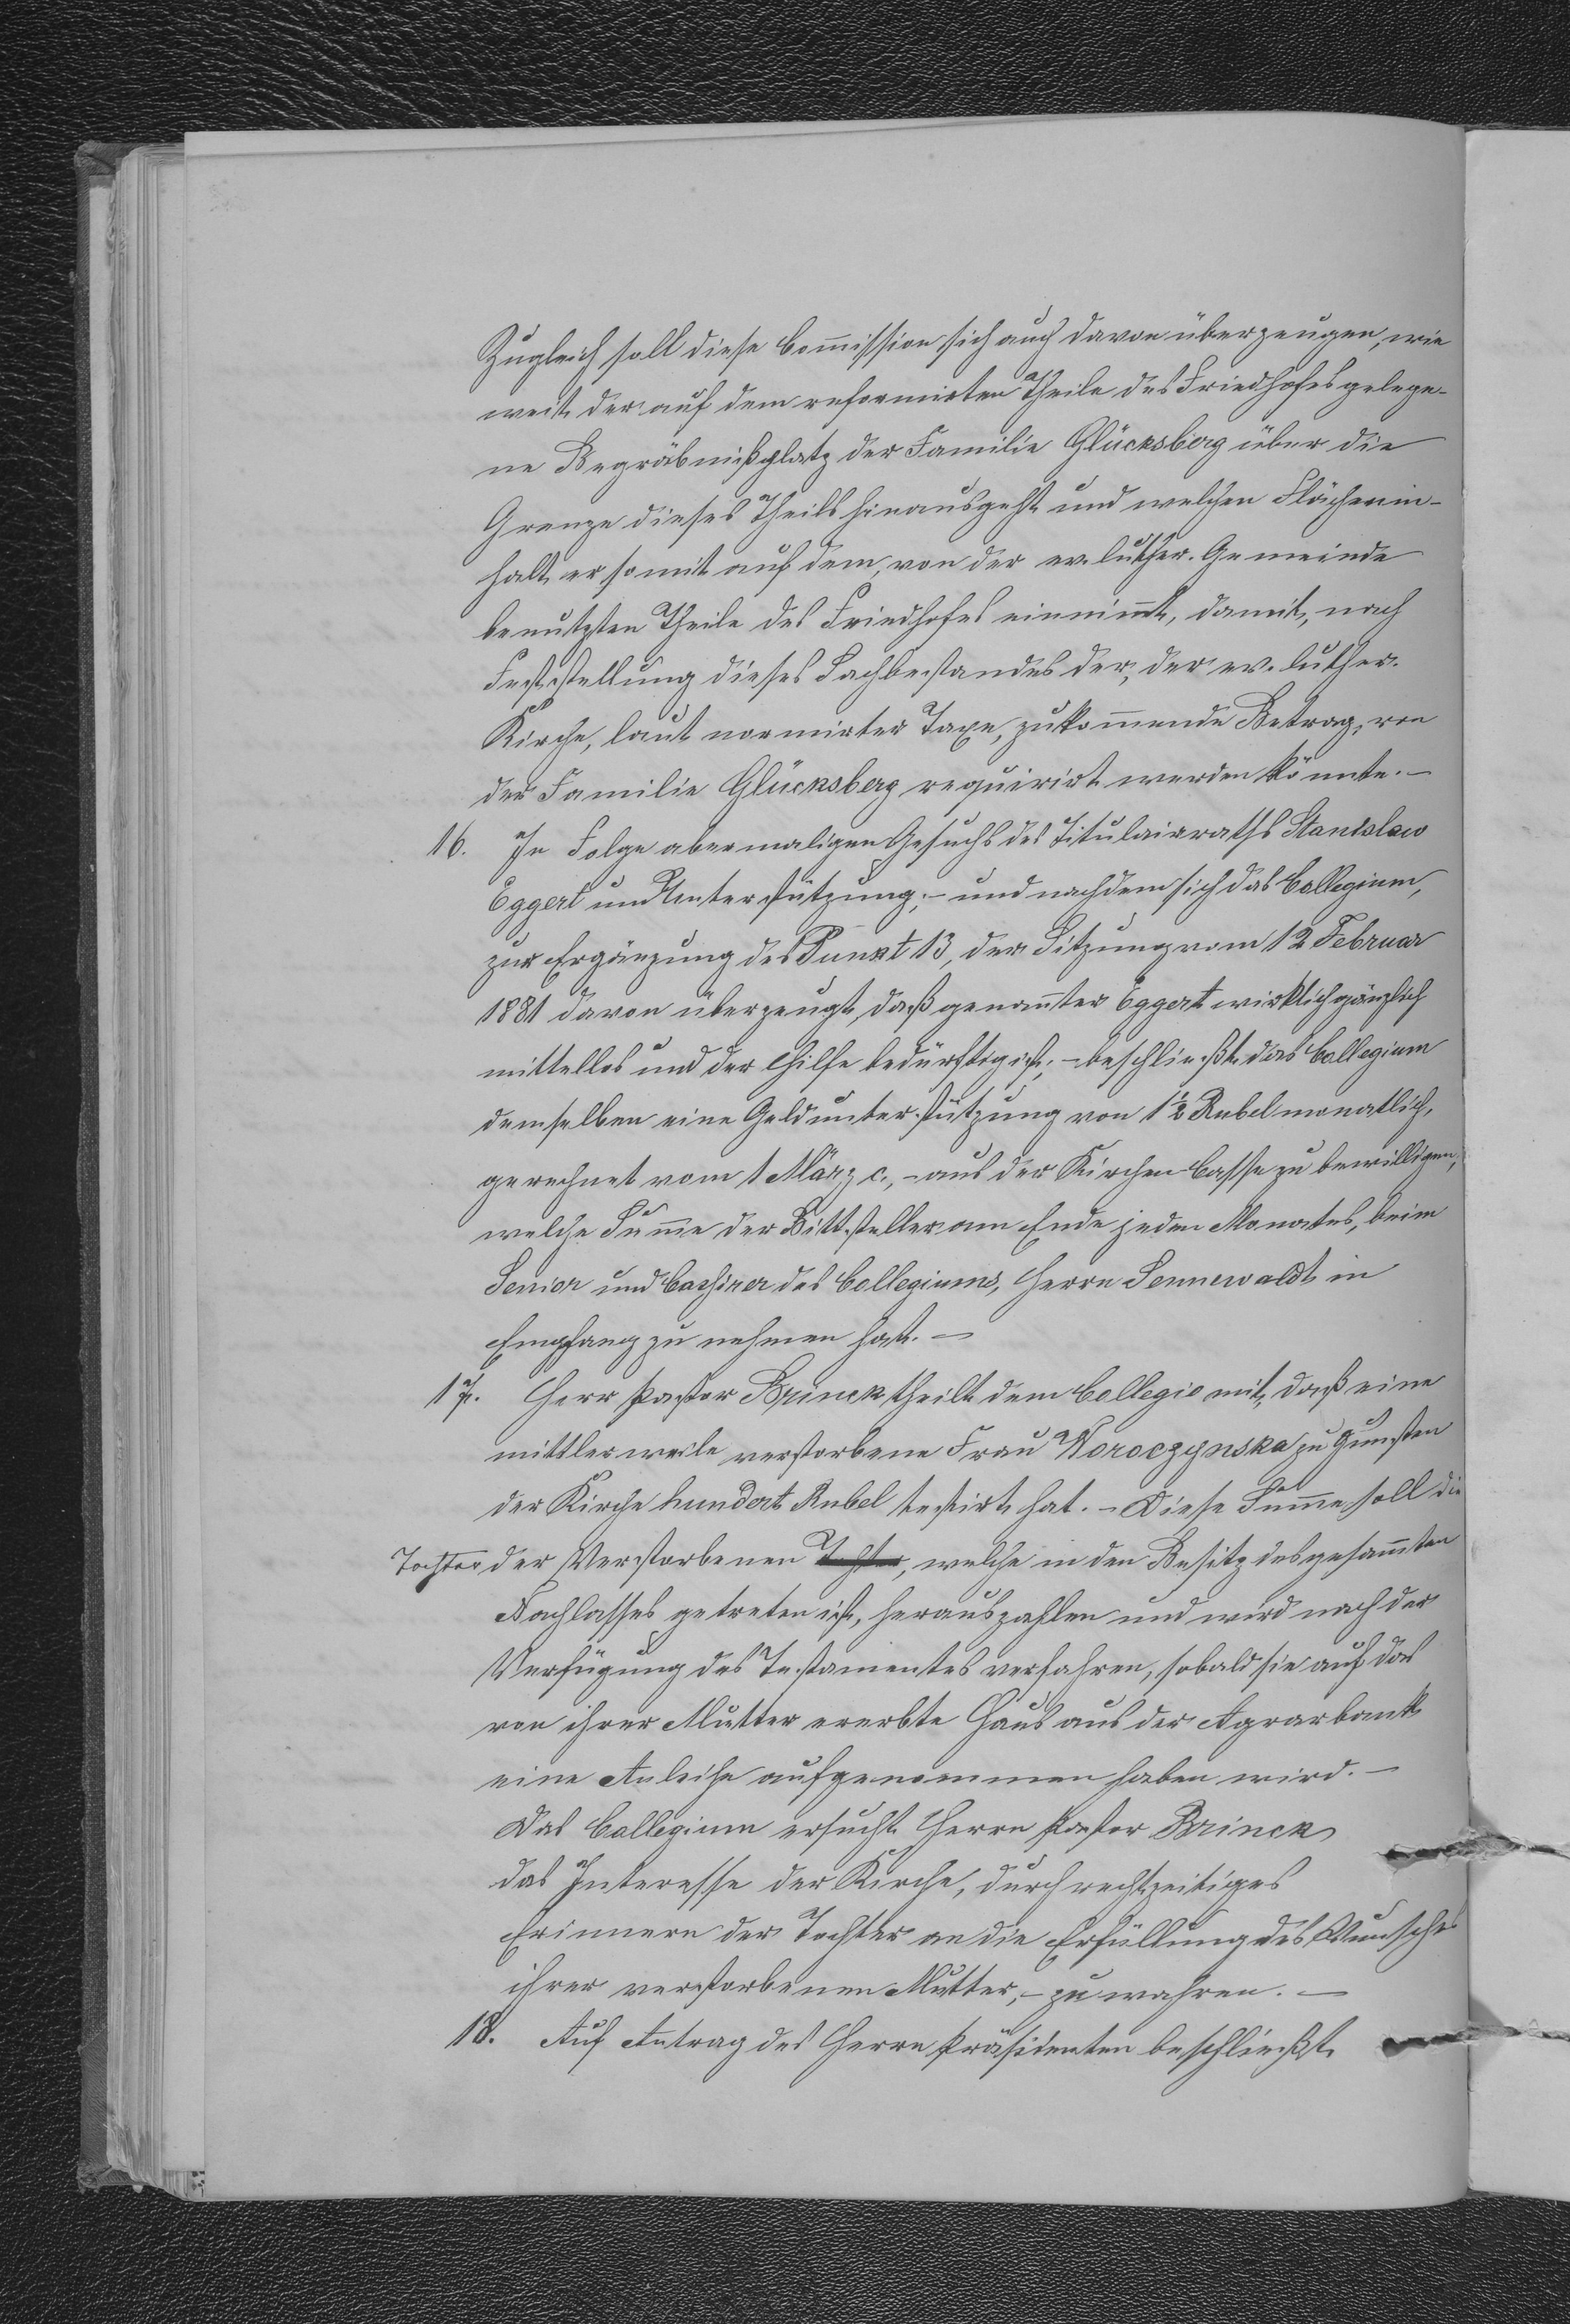 Zugleich soll diese Com̄ission sich auch davon überzeugen, wie
weit der auf dem reformirten Theile des Friedhofes gelege-
ne Begräbnißplatz der Familie Glücksberg über die
Grenze dieses Theils hinausgeht und welchen Flächenin-
halt er somit auf dem, von der ev. luther. Gemeinde
benutzten Theile des Friedhofes einnim̄t, damit, nach
Feststellung dieses Sachbestandes der, der ev. luther.
Kirche, laut normirter Taxe, zukom̄ende Betrag, von
der Familie Glücksberg requirirt werden könnte. –
16. In Folge abermaligen Gesuchs des Titulairraths Stanislaw
Eggert um Unterstützung; – und nachdem sich das Collegium,
zur Ergänzung des Punkt 13, der Sitzung vom 12 Februar
1881 davon überzeugt, daß genan̄ter Eggert wirklich gänzlich
mittellos und der Hilfe bedürftig ist; – beschließt das Collegium
demselben eine Geldunterstützung von 1½ Rubel monatlich,
gerechnet vom 1 März c., – aus der Kirchen Casse zu bewilligen,
welche Sum̄e der Bittsteller am Ende jeden Monates, beim
Senior und Cassirer des Collegiums, Herrn Sennewaldt in
Empfang zu nehmen hat. –
17. Herr Pastor Brinck theilt dem Collegio mit, daß eine
mittlerweile verstorbene Frau Woroczynska zu Gunsten
der Kirche hundert Rubel testirt hat. – Diese Sum̄e soll die
Tochter der Verstorbenen Tochter, welche in den Besitz des gesam̄ten
Nachlasses getreten ist, herauszahlen und wird nach der
Verfügung des Testamentes verfahren, sobald sie auf das
von ihrer Mutter ererbte Haus aus der Agrarbank
eine Anleihe aufgenommen haben wird. –
Das Collegium ersucht Herrn Pastor Brinck
das Interesse der Kirche, durch rechtzeitiges
Erinnern der Tochter an die Erfüllung des Wunsches
ihrer verstorbenen Mutter, – zu wahren. –
18. Auf Antrag des Herrn Präsidenten beschließt